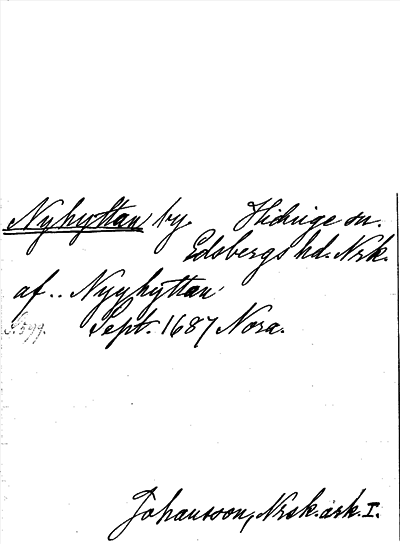 Nyhyttan by. Hidinge sn.
Edsbergs hd. Nrk.
af.. Nyyhyttan
Sept. 1687 Nora.
Johansson, Nrsk. ark. I.